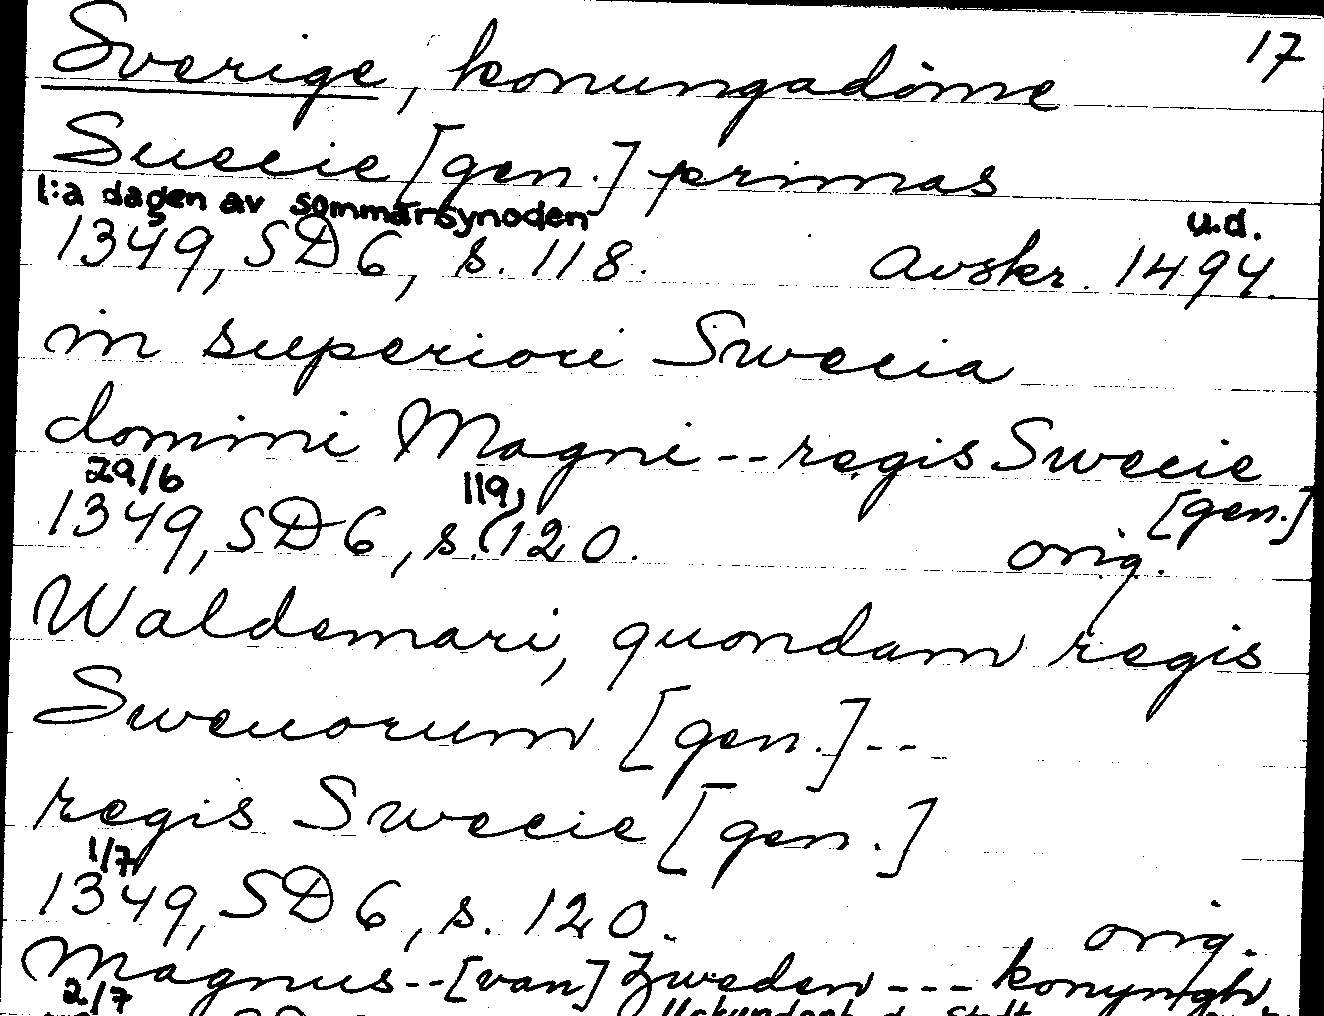 17
Sverige, konungadöme
Suecie [gen.] primas
1:a dagen av sommarsynoden u.d.
1349, SD 6, s. 118. Avskr. 1494.
in superiori Swecia
domini Magni -- regis Swecie
29/6 119, [gen.]
1349, SD 6, s. (120. orig.
Waldemari, quondam regis
Sweuorum [gen.] --
regis Swecie [gen.]
1/7
1349, SD 6, s. 120. orig.
Magnus -- [van] Zweden --- konyngh
2/7